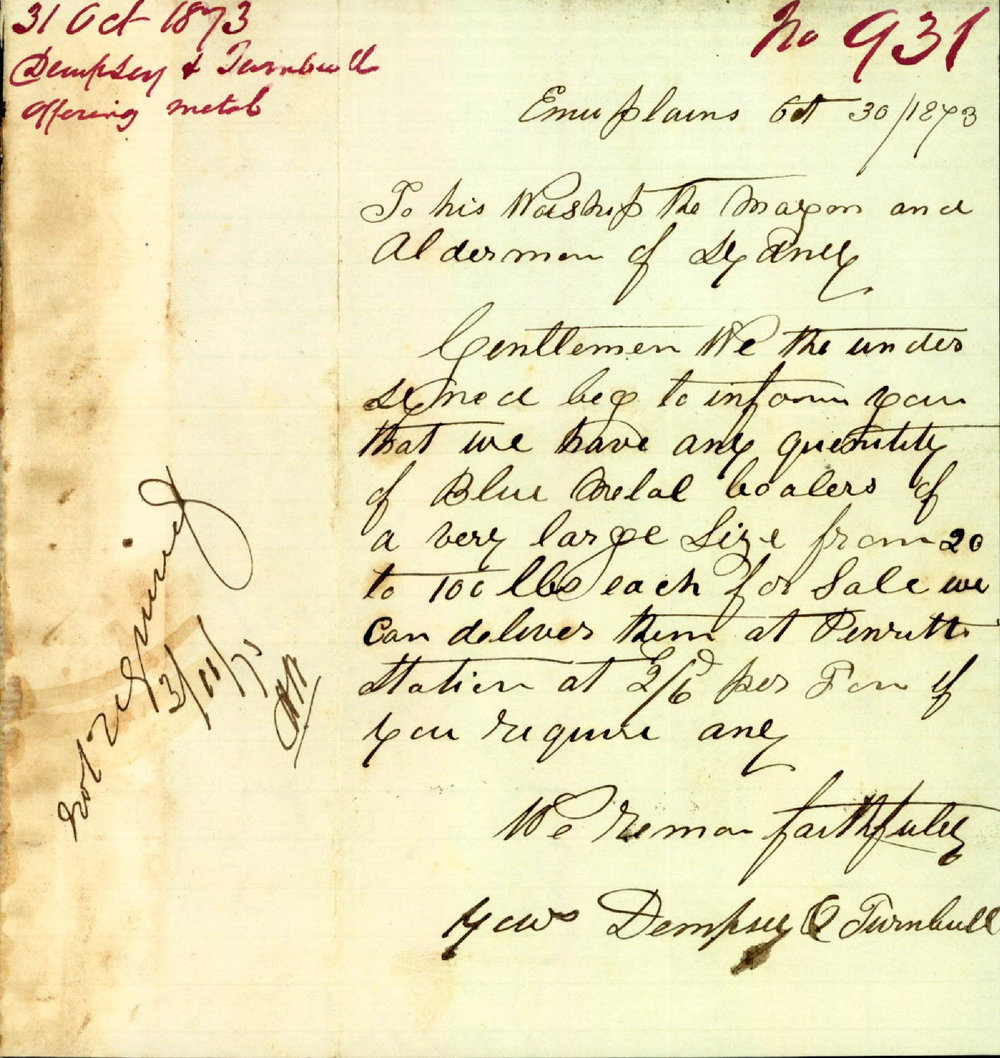 31 Oct 1873
Dempsey & Turnbull
offering metal
No 931
Emu plains Oct 30/1873
To his Worship the Mayor and
Aldermen of Sydney
Gentlemen We the under
Syned beg to inform you
that we have any quentity
of Blue Metal boalers of
a very large Size from 20
to 100 lbs each for Sale we
Can deliver them at Penrith
Station at 2/6d per Ton if
you require any
We reman faithfuley
yours Dempsey & Turnbull
not required
3/11/73